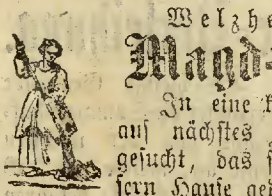 Welzhe
Magd-
In eine
auf nächstes
gesucht, das
sern Hause ge